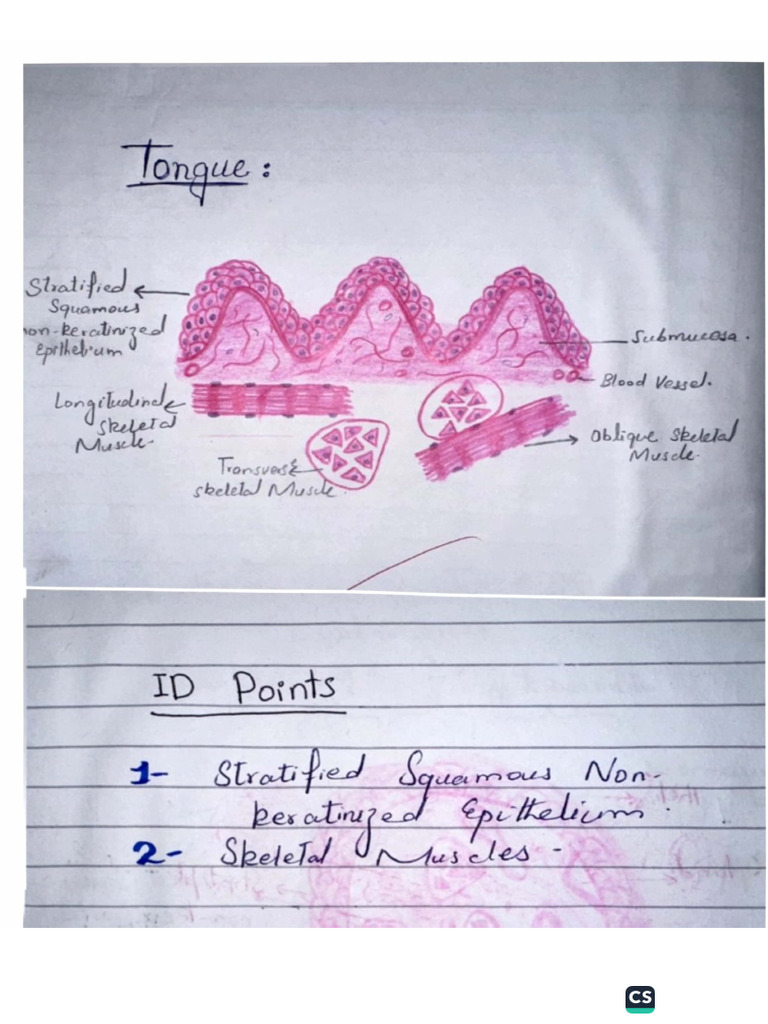 Tongue:
Stratified
Squamous
non-keratinized
epithelium
Longitudinal
Skeletal
Muscle
Transverse
skeletal Muscle.
Submucosa.
Blood Vessel.
Oblique Skeletal
Muscle.
ID Points
1- Stratified Squamous Non-
keratinized Epithelium.
2- Skeletal Muscles -
CS